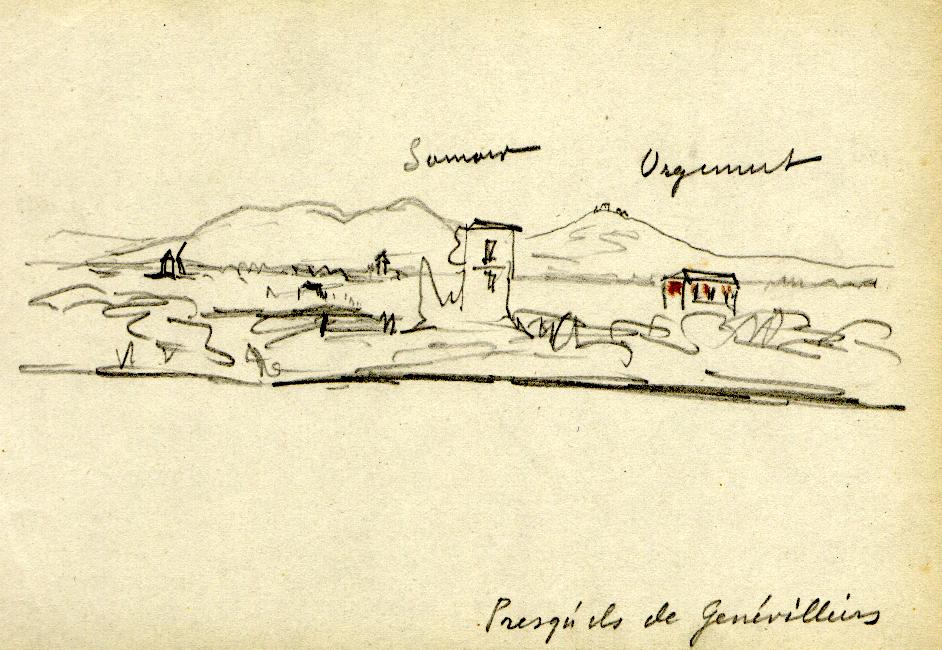 Sannois
Orgemont
Presqu'ile de Genévilliers